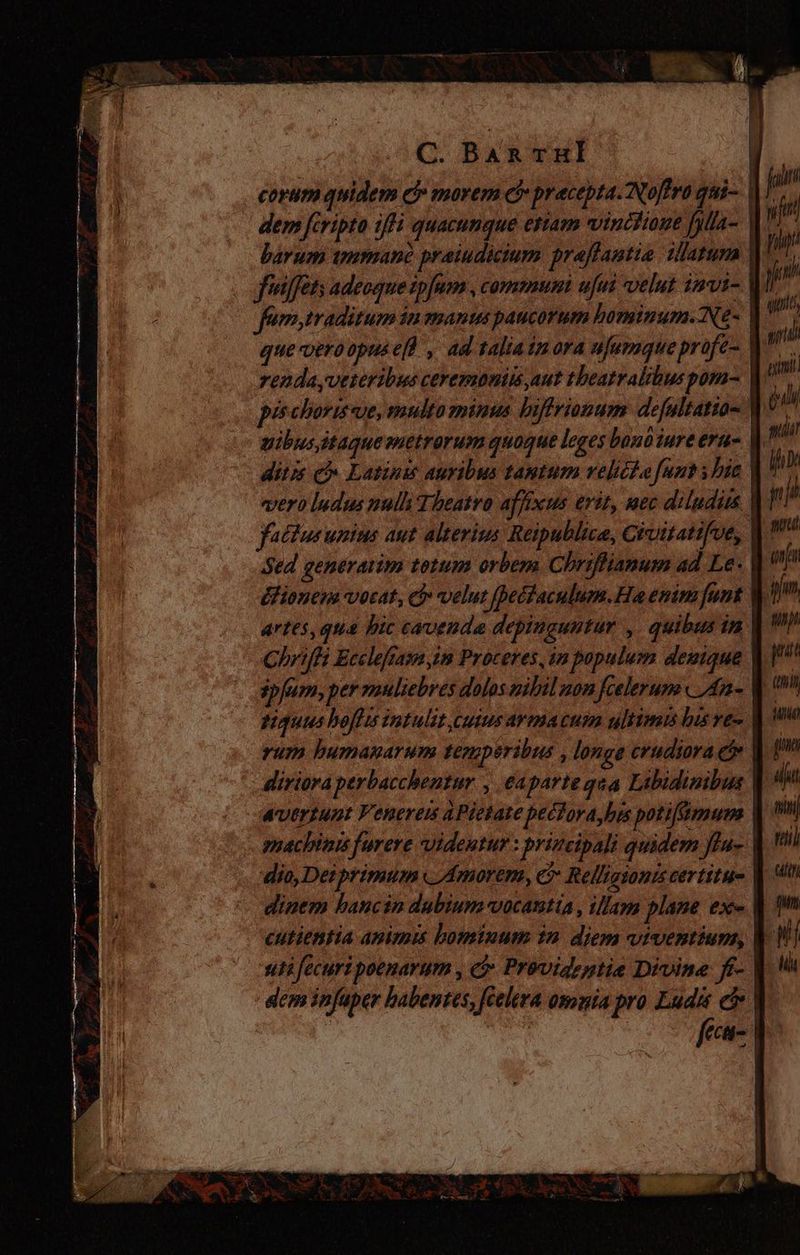 C. BARTHI
corum quidem & morem & præcepta. Noſtro qui-
dem ſcripto iſti quacunque etiam vinctione ſylla-
barum immane præiudicium præſtantiæ illatum
fuiſſet; adeoque ipſum, communi uſui velut invi-
ſum, traditum in manus paucorum hominum. Ne-
que vero opus eſt, ad talia in ora uſumque profe-
renda, veteribus ceremoniis, aut theatralibus pom-
pis choris ve, multo minus hiſtrionum deſultatio-
nibus, itaque metrorum quoque leges bonò iure eru-
ditis & Latinis auribus tantum relictæ ſunt; hic
vero ludus nulli Theatro affixus erit, nec diludiis
factus unius aut alterius Reipublicæ, Civitatiſve,
Sed generatim totum orbem Chriſtianum ad Le-
ctionem vocat, & velut ſpectaculum. Hæ enim ſunt
artes, quæ hic cavendæ depinguntur, quibus in
Chriſti Eccleſiam, in Proceres, in populum denique
ipſum, per muliebres dolos nihil non ſcelerum An-
tiquus hoſtis intulit, cuius arma cum ultimis his re-
rum humanarum temporibus, longe crudiora &
diriora perbacchentur, ea parte qua Libidinibus
avertunt Venereis à Pietate pectora, his potiſsimum
machinis furere videntur: principali quidem ſtu-
dio, Dei primum Amorem, & Relligionis certitu-
dinem hanc in dubium vocantia, illam plane exc-
cutientia animis hominum in diem viventium,
uti ſecuri pœnarum, & Providentiæ Divinæ fi-
dem inſuper habentes, ſcelera omnia pro Ludis &
ſecu-